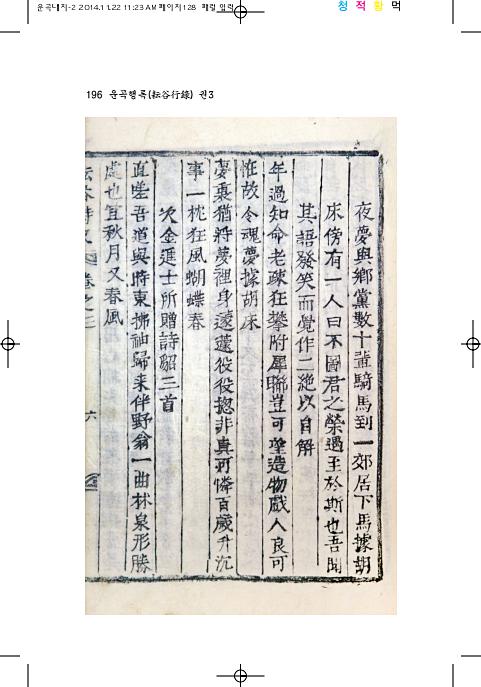 운곡내지-2 2014.11.22 11:23 AM 페이지128
청 적 황 먹
196 운곡행록(耘谷行錄) 권3
夜夢與鄕黨數十輩騎馬到一郊居下馬據胡
床傍有一人曰不啚君之榮遇至於斯也吾聞
其語發笑而覺作二絶以自解
年過知命老疎狂攀附犀聯豈可望造物戱人良可
恠故令魂夢據胡床
夢裏猶將蔆裡身蘧蘧役役摠非真可憐百歲升沉
事一枕狂風蝴蝶春
次金進士所贈詩韶三首
直嗟吾道與時東拂袖歸来伴野翁一曲林泉形勝
處也宜秋月又春風
卷之三
六